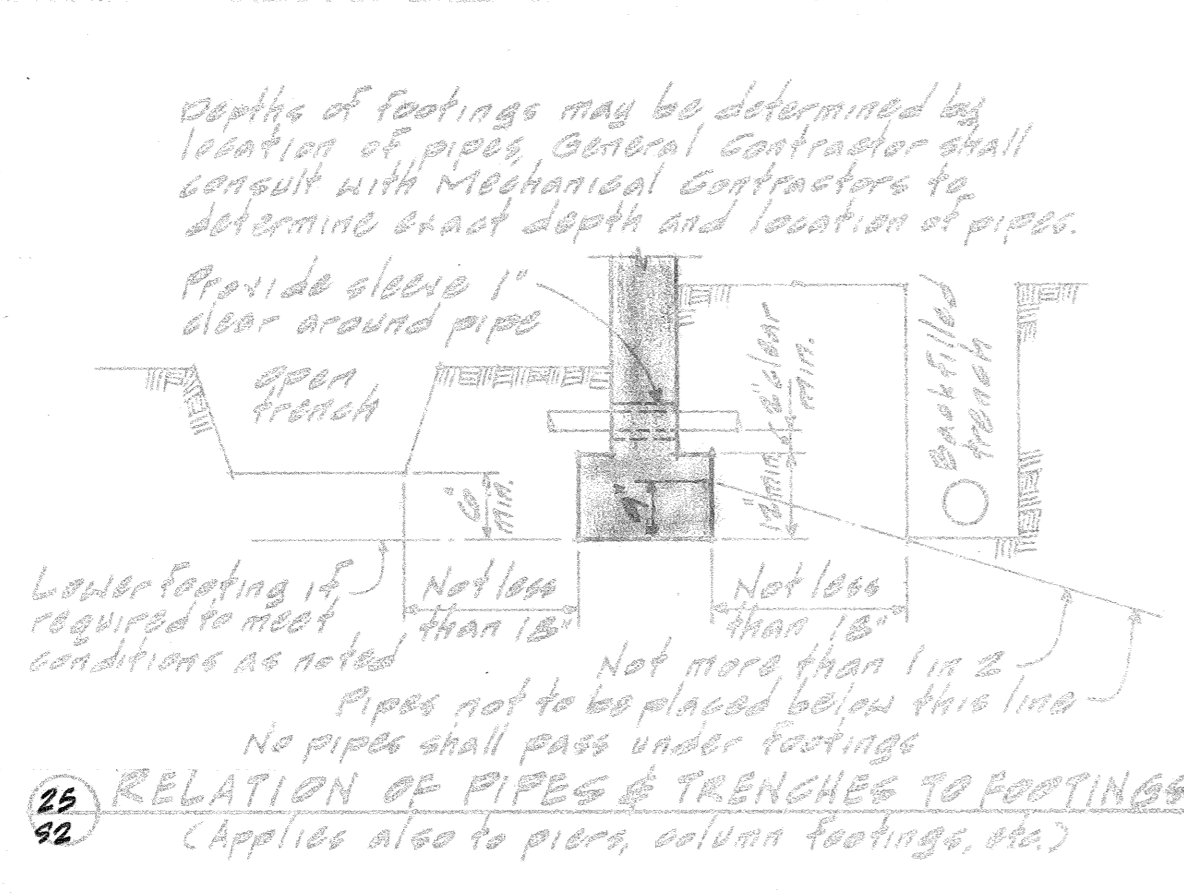 Depths of footings may be determined by
location of pipes, General Contractor shall
consult with Mechanical Contractors to
determine exact depth and location of pipes.
Provide sleeve 1"
clear around pipe
Open
trench
2" clear
min.
12" min.
Backfilled
trench
6"
min.
Lower footing if
required to meet
conditions as noted
Not less
than 18"
Not less
than 18"
Not more than 1 in 2
Pipes not to be placed below this line
No pipes shall pass under footings
25
S2
RELATION OF PIPES & TRENCHES TO FOOTINGS
(Applies also to piers, column footings, etc.)